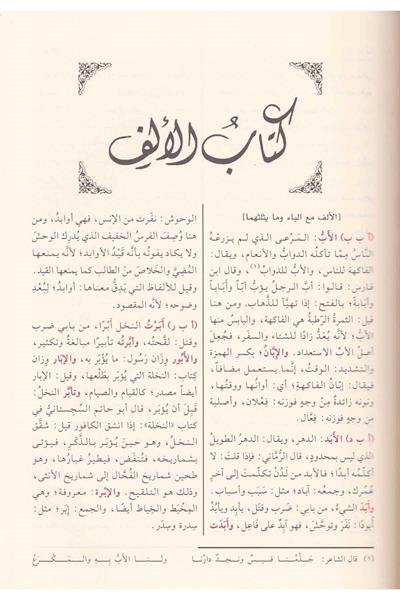 كتاب الألف
[الألف مع الباء وما يثلثهما]
(أ ب ب) الأَبُّ: المَرعى الذي لم يزرعهُ
النَّاسُ ممَّا تأكله الدوابُّ والأنعام، ويقال:
الفاكهة للناس، والأَبُّ للدوابِّ(١)، وقال ابن
فارس: قالوا: أبَّ الرجلُ يؤبُّ أبّاً وأباباً
وأبابةً؛ بالفتح: إذا تهيَّأ للذَّهاب. ومن هنا
قيل: الثمرةُ الرَّطبةُ هي الفاكهة، واليابسُ منها
الأَبُّ؛ لأنه يُعدُّ زادًا للشتاء والسفَر، فجُعِلَ
أصلُ الأبِّ الاستعداد. والإبَّانُ؛ بكسر الهمزة
والتشديد: الوقتُ، إنَّما يستعمل مضافاً،
فيقال: إبَّانُ الفاكهةِ؛ أي: أوانُها ووقتُها،
ونونه زائدةٌ مِنْ وجهٍ فوزنه: فِعْلان، وأصلية
من وجهٍ فوزنه: فِعَّال.
(أ ب د) الأبَد: الدهر، ويقال: الدهرُ الطويلُ
الذي ليس بمحدودٍ، قال الرُّمَّاني: فإذا قلت: لا
أكلِّمه أبدًا؛ فالأبد من لَدُنْ تكلَّمتَ إلى آخرِ
عُمُرك، وجمعُه: آباد؛ مثل: سَبَب وأسباب.
وأبَدَ الشيءُ، من بابي: ضرب وقتل، يأبِدُ ويأبُدُ
أبودًا: نَفَرَ وتوحَّشَ، فهو آبِدٌ على فاعِلٍ، وأبَدَت
الوحوش: نفَرت من الإنس، فهي أوابدُ، ومن
هنا وُصِفَ الفرسُ الخفيف الذي يُدرِك الوحشَ
ولا يكاد يفوتُه بأنَّه قَيْدُ الأوابد؛ لأنه يمنعها
المُضِيَّ والخَلاصَ منَ الطالب كما يمنعها القيد.
وقيل للألفاظ التي يَدِقُّ معناها: أوابِدُ؛ لِبُعْدِ
وضوحه؛ لأنَّه المقصود.
(أ ب ر) أبَرْتُ النخلَ أبْرًا، من بابي ضرب
وقتل: لقَّحتُه، وأبَّرتُه تأبيرًا مبالغةٌ وتكثير،
والأَبُور وِزان رَسُول: ما يُؤبَر به، والإبَار وِزان
كِتاب: النخلة التي يُؤبَر بطَلْعها، وقيل: الإبار
أيضاً مصدر؛ كالقيام والصيام، وتأبَّر النخلُ:
قَبِلَ أن يُؤبَر، قال أبو حاتم السِّجِستاني في
كتاب «النخلة»: إذا انشق الكافور قيل: شقَّقَ
النخلُ، وهو حين يُؤبَر بالذَّكَر، فيؤتى
بشماريخه، فتُنفض، فيطير غبارُها، وهو
طحين شماريخِ الفُحَّال إلى شماريخ الأنثى،
وذلك هو التلقيح. والإبْرة: معروفة؛ وهي
المِخْيَط والخِياط أيضًا، والجمع: إبَر؛ مثل:
سِدرة وسِدَر.
(١) قال الشاعر: جَذْمُنا قيسٌ ونجدٌ دارُنا ولنا الأبُّ بِهِ والمَكْرَعُ